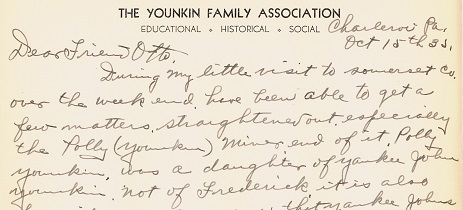 THE YOUNKIN FAMILY ASSOCIATION
EDUCATIONAL ⬥ HISTORICAL ⬥ SOCIAL
Charleroi Pa.
Oct 15th 35.
Dear Friend Otto.
During my little visit to somerset co.
over the week end, have been able to get a
few matters, straightened out, especially
the Polly (Younkin) Miner end of it, Polly
younkin, was a daughter of yankee John
younkin. not of Frederick it is also
that yankee Johns